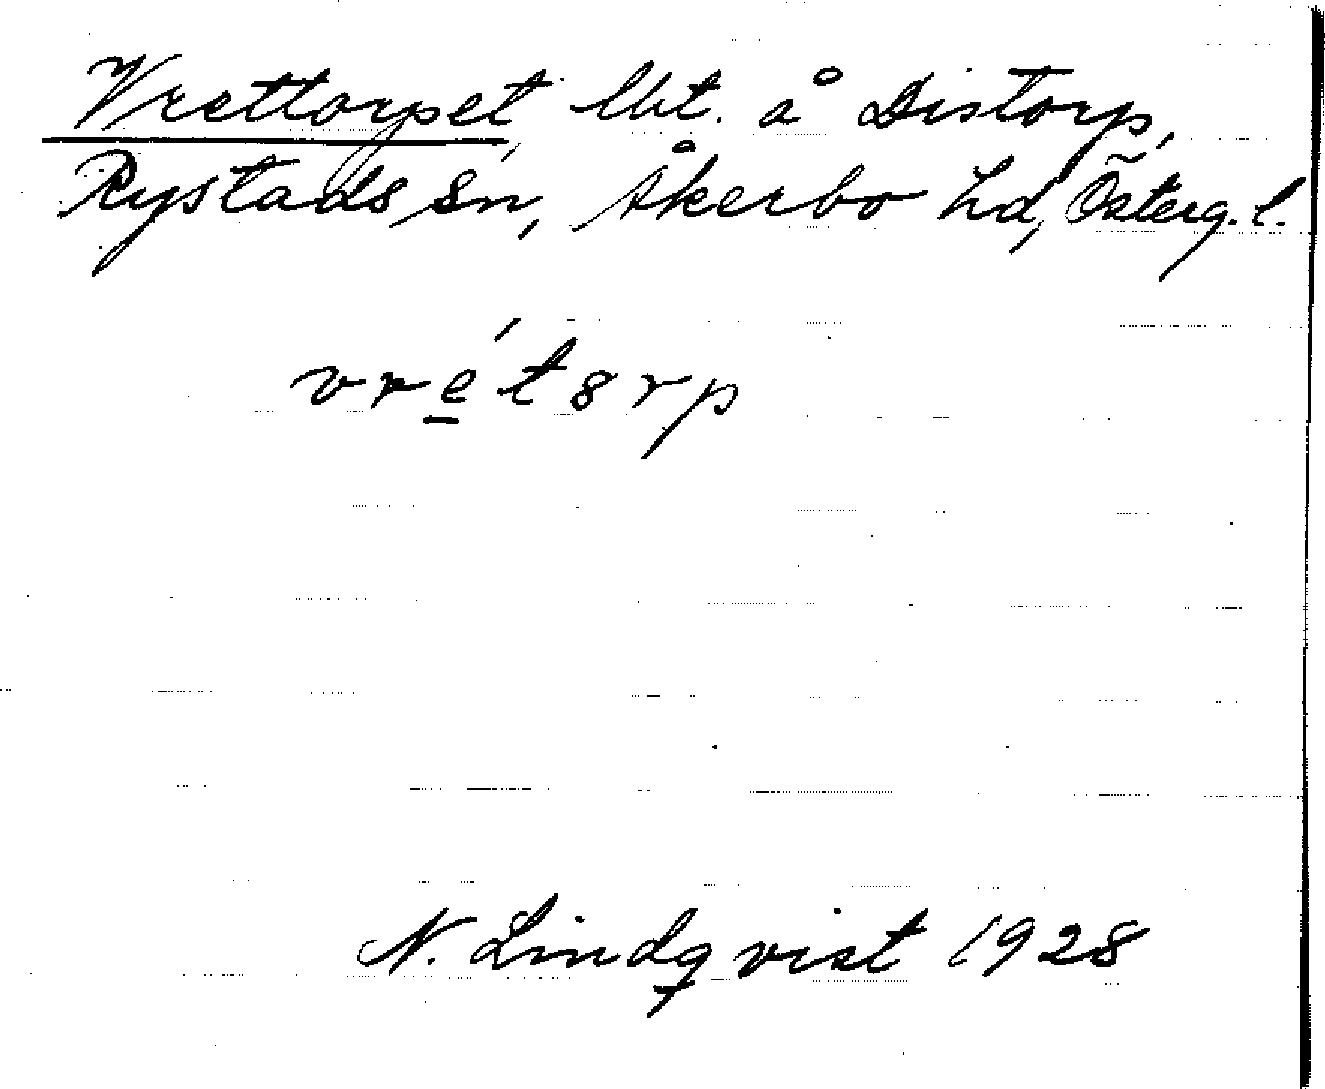 Vrettorpet, lht. å Distorp,
Rystads sn, Åkerbo hd, Österg. l.
vré̲t8rp
N. Lindqvist 1928